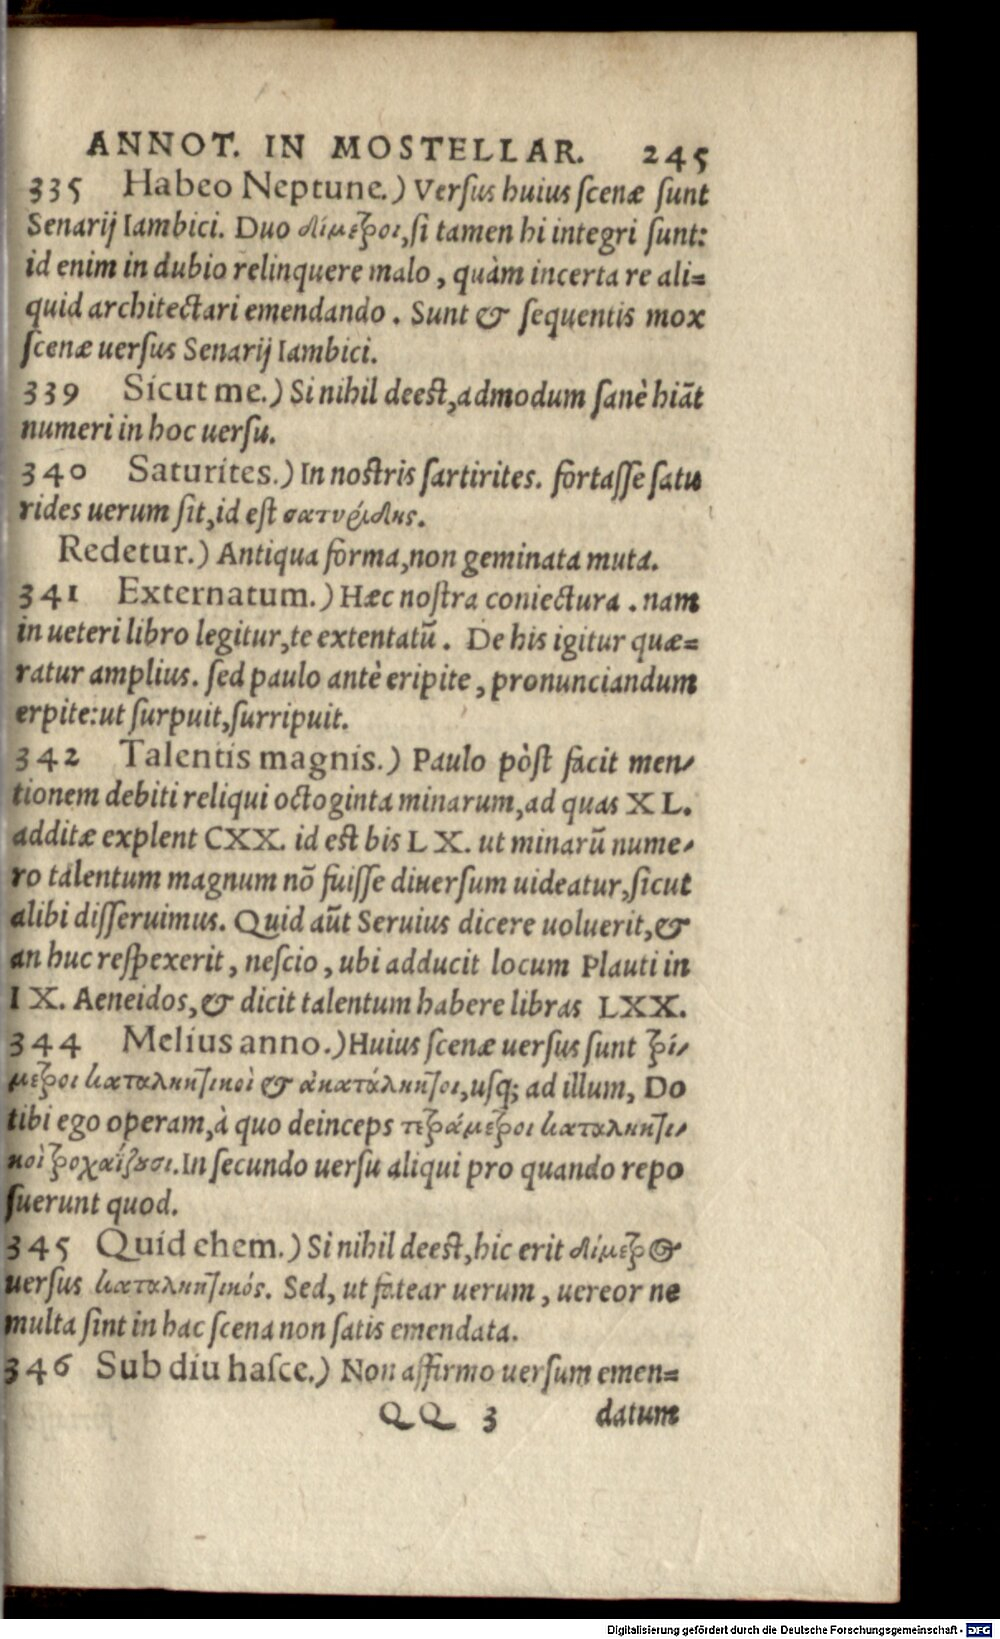 ANNOT. IN MOSTELLAR. 245
335 Habeo Neptune.) Versus huius scenæ sunt
Senarij Iambici. Duo δίμετροι, si tamen hi integri sunt:
id enim in dubio relinquere malo, quàm incerta re ali=
quid architectari emendando. Sunt & sequentis mox
scenæ uersus Senarij Iambici.
339 Sicut me.) Si nihil deest, admodum sanè hiāt
numeri in hoc uersu.
340 Saturites.) In nostris sartirites. fortasse satu
rides uerum sit, id est σατυρίδης.
Redetur.) Antiqua forma, non geminata muta.
341 Externatum.) Hæc nostra coniectura. nam
in ueteri libro legitur, te extentatū. De his igitur quæ=
ratur amplius. sed paulo antè eripite, pronunciandum
erpite: ut surpuit, surripuit.
342 Talentis magnis.) Paulo pòst facit men-
tionem debiti reliqui octoginta minarum, ad quas XL.
additæ explent CXX. id est bis LX. ut minarū nume-
ro talentum magnum nō fuisse diuersum uideatur, sicut
alibi disseruimus. Quid aūt Seruius dicere uoluerit, &
an huc respexerit, nescio, ubi adducit locum Plauti in
IX. Aeneidos, & dicit talentum habere libras LXX.
344 Melius anno.) Huius scenæ uersus sunt τρί-
μετροι καταληκτικοὶ & ἀκατάληκτοι, usq; ad illum, Do
tibi ego operam, à quo deinceps τετράμετροι καταληκτι-
κοὶ τροχαΐζουσι. In secundo uersu aliqui pro quando repo
suerunt quod.
345 Quid ehem.) Si nihil deest, hic erit δίμετρος
uersus καταληκτικός. Sed, ut fatear uerum, uereor ne
multa sint in hac scena non satis emendata.
346 Sub diu hasce.) Non affirmo uersum emen=
QQ 3 datum
Digitalisierung gefördert durch die Deutsche Forschungsgemeinschaft - DFG